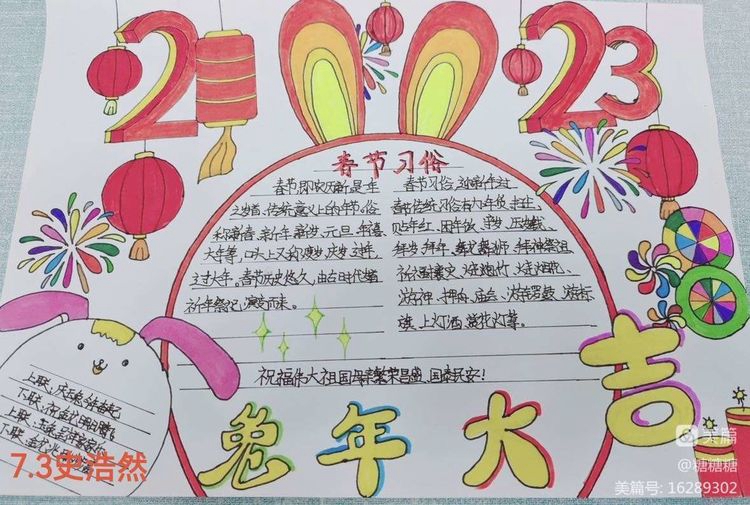 2023
春节习俗
春节,即农历新年,是一年
之岁首、传统意义上的年节。俗
称新春、新年、新岁、元旦、年禧、
大年等,口头上又称度岁、庆岁、过年、
过大年。春节历史悠久,由古时代
祈年祭祀演变而来。
春节习俗
春节传统习俗有
贴年红、团年饭、守岁、压岁钱、
拜岁、拜年、舞龙舞狮、拜神祭祖、
祈福、烧炮竹、烧烟花、
游神、押舟、庙会、游锣鼓、游标
旗、上灯酒、赏花灯等。
祝福伟大祖国母亲繁荣昌盛,国泰民安!
上联:
下联:
上联:
下联:
兔年大吉
7.3史浩然
美篇
@糖糖糖
美篇号: 16289302